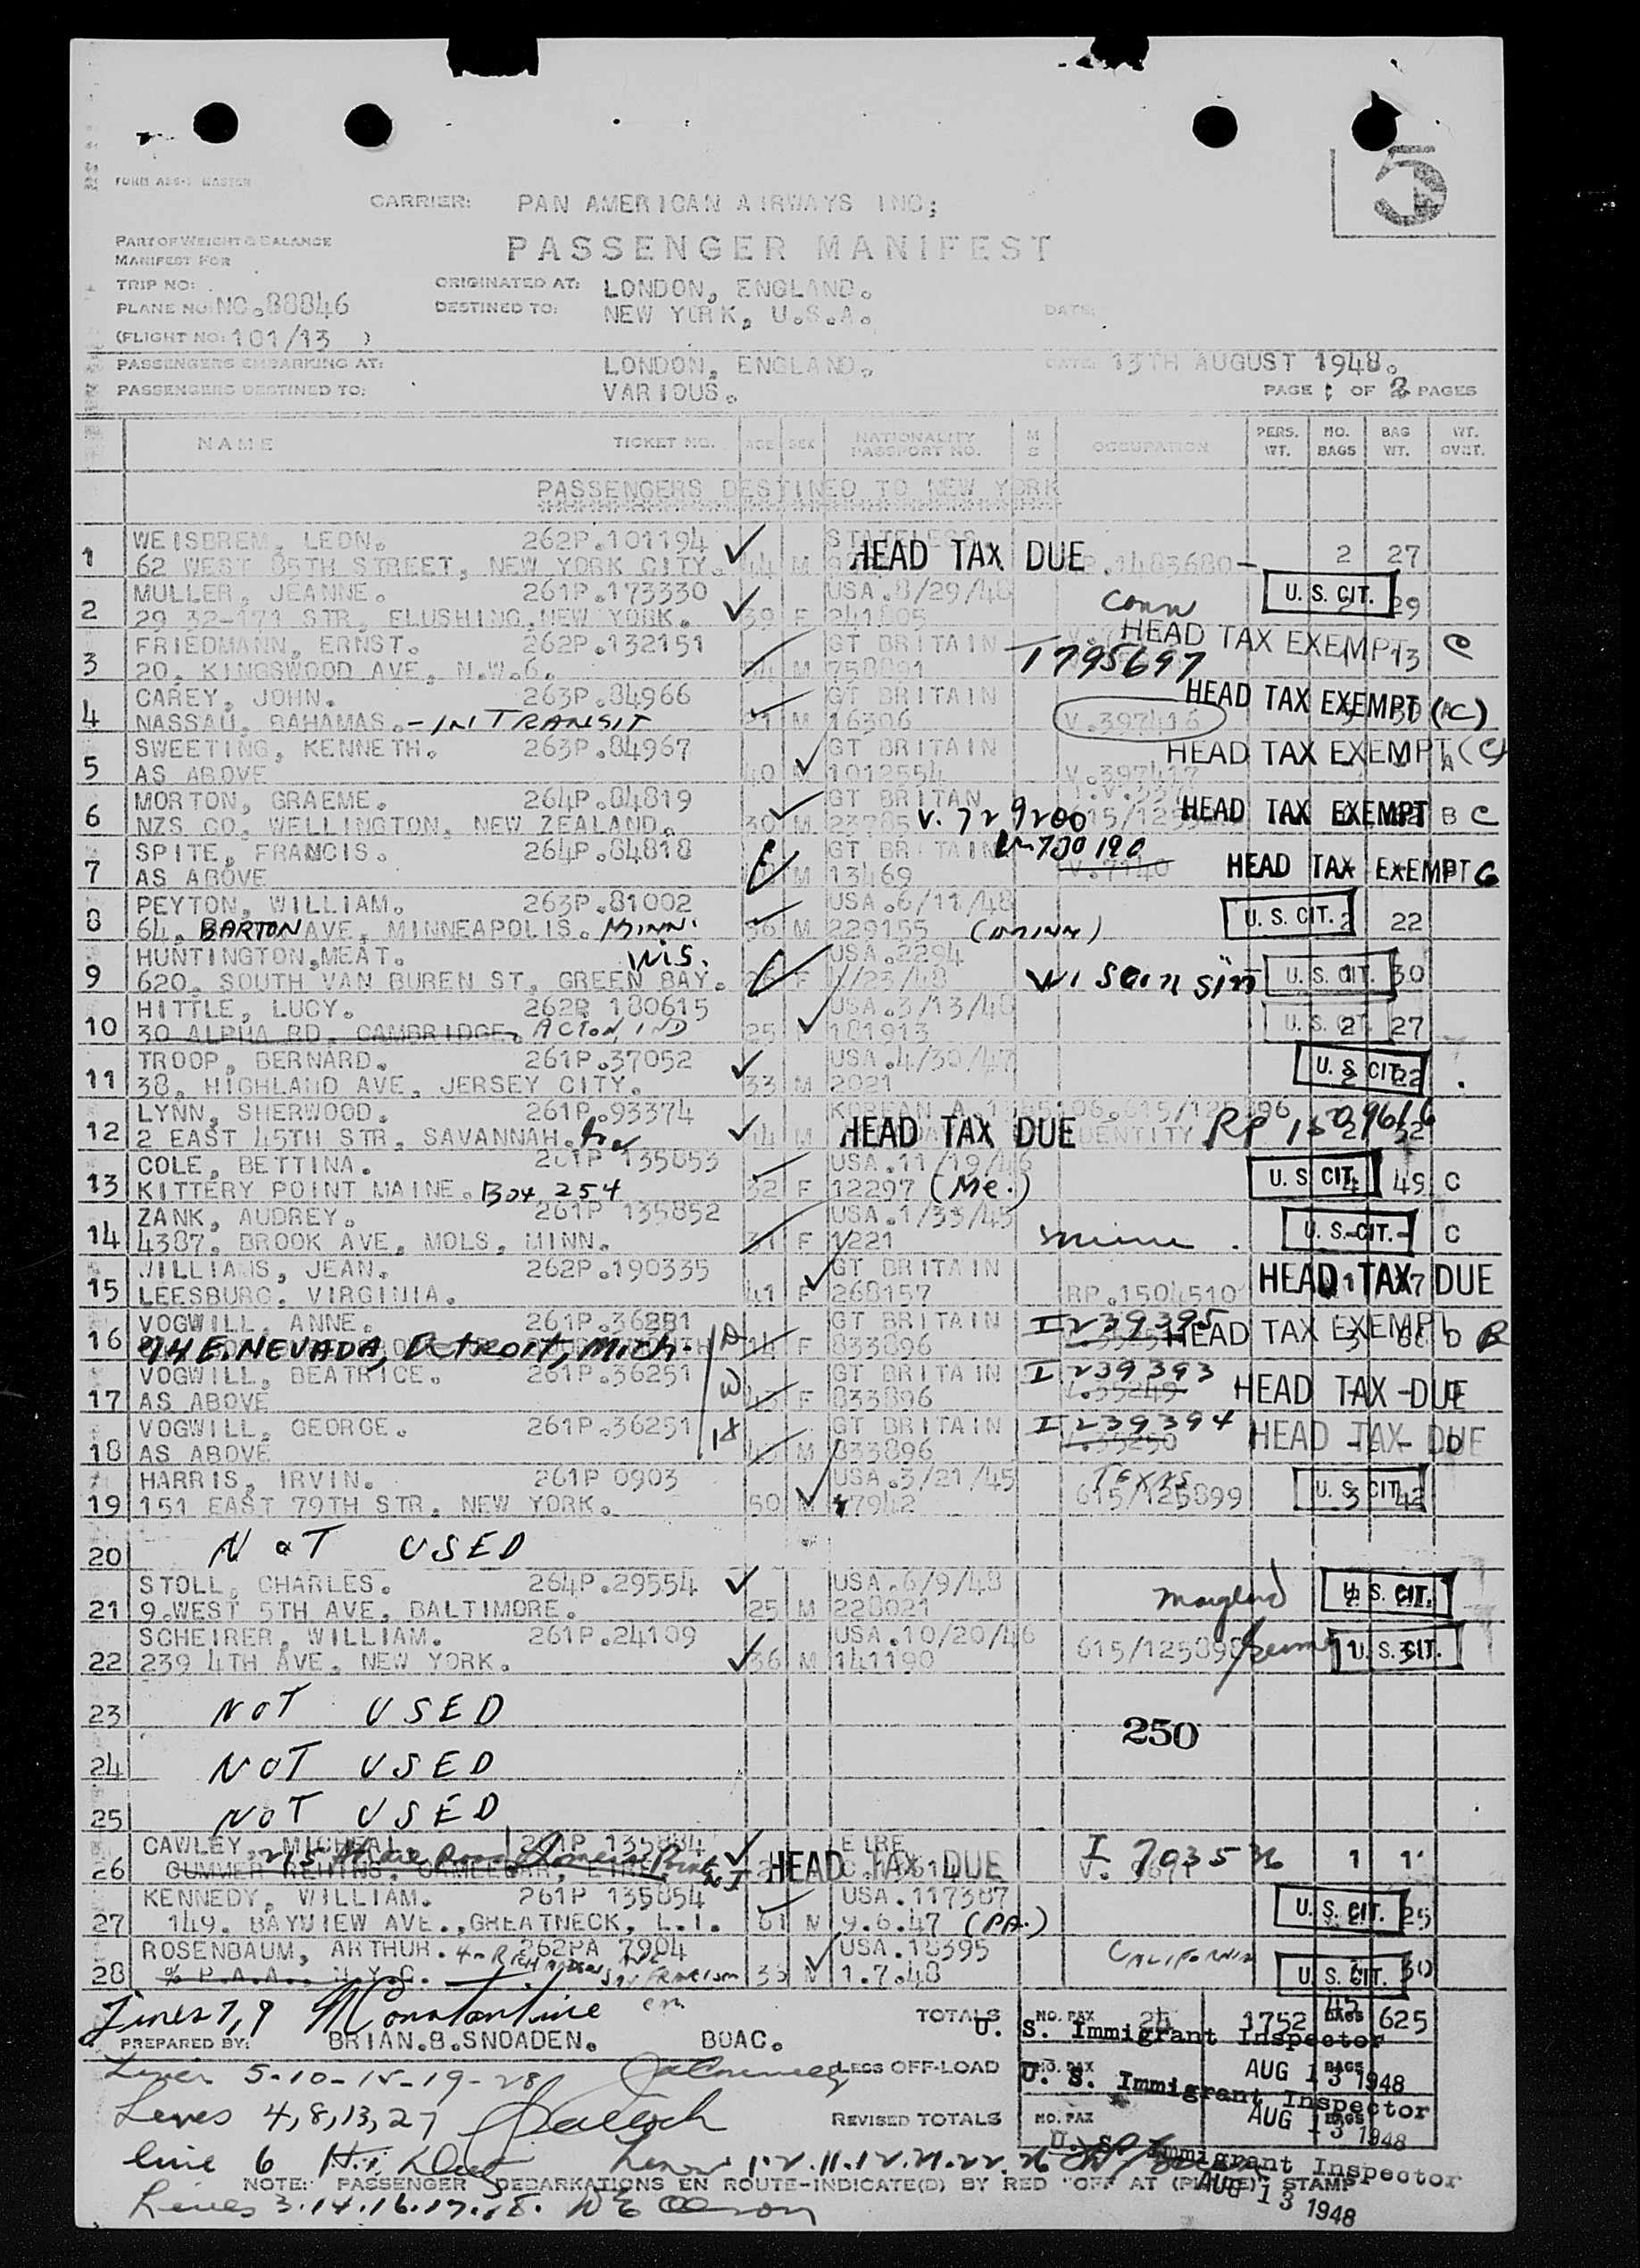 5
FORM
CARRIER: PAN AMERICAN AIRWAYS INC;
PASSENGER MANIFEST
PART OF WEIGHT & BALANCE
MANIFEST FOR
TRIP NO:
PLANE NO: NC.88846
(FLIGHT NO: 101/13 )
ORIGINATED AT: LONDON, ENGLAND.
DESTINED TO: NEW YORK, U.S.A.
DATE:
PASSENGERS EMBARKING AT: LONDON, ENGLAND. DATE: 13TH AUGUST 1948.
PASSENGERS DESTINED TO: VARIOUS. PAGE 1 OF 2 PAGES
NAME TICKET NO. AGE SEX NATIONALITY PASSPORT NO. M S OCCUPATION PERS. WT. NO. BAGS BAG WT. WT. OVNT.
PASSENGERS DESTINED TO NEW YORK
WEISBREM, LEON. 262P.101194 STATELESS.
1 62 WEST 85TH STREET, NEW YORK CITY. 44 M HEAD TAX DUE .1483680 2 27
MULLER, JEANNE. 261P.173330 USA.8/29/48 U. S. CIT.
2 29 32-171 STR, FLUSHING, NEW YORK. 39 F 241805 Conn 29
FRIEDMANN, ERNST. 262P.132151 GT BRITAIN HEAD TAX EXEMPT C
3 20, KINGSWOOD AVE, N.W.6. M 758891 T795697 13
CAREY, JOHN. 263P.84966 GT BRITAIN HEAD TAX EXEMPT (C)
4 NASSAU, BAHAMAS.-IN TRANSIT 21 M 16306 V.397416
SWEETING, KENNETH. 263P.84967 GT BRITAIN HEAD TAX EXEMPT (C)
5 AS ABOVE 40 M 1012554 V.397417
MORTON, GRAEME. 264P.84819 GT BRITAN HEAD TAX EXEMPT B C
6 NZS CO, WELLINGTON, NEW ZEALAND. 30 M 23785 V. 729200
SPITE, FRANCIS. 264P.84818 GT BRITAIN 730190
7 AS ABOVE M 13469 V.7140 HEAD TAX EXEMPT C
PEYTON, WILLIAM. 263P.81002 USA.6/11/48 U. S. CIT.
8 64, BARTON AVE, MINNEAPOLIS. MINN. 36 M 229155 (MINN) 2 22
HUNTINGTON,MEAT. WIS. USA.2294
9 620, SOUTH VAN BUREN ST, GREEN BAY. F 1/23/48 Wisconsin U. S. CIT. 30
HITTLE, LUCY. 262P 180615 USA.3/13/48
10 30 ALPHA RD, CAMBRIDGE, ACTON, IND 25 181913 U. S. CIT. 2 27
TROOP, BERNARD. 261P.37052 USA.4/30/47
11 38, HIGHLAND AVE, JERSEY CITY. 33 M 2021 U. S. CIT. 22
LYNN, SHERWOOD. 261P.93374 KOREAN
12 2 EAST 45TH STR, SAVANNAH. 44 M HEAD TAX DUE IDENTITY
COLE, BETTINA. 261P 135853 USA.11/19/46
13 KITTERY POINT MAINE. Box 254 32 F 12297 (Me.) U. S. CIT. 4 49 C
ZANK, AUDREY. 261P 135852 USA.1/33/45
14 4387, BROOK AVE, MOLS, MINN. 31 F 1221 Minn. U. S. CIT. C
WILLIAMS, JEAN. 262P.190335 GT BRITAIN
15 LEESBURG, VIRGINIA. 41 F 268157 RP.1504510 HEAD TAX DUE
VOGWILL, ANNE. 261P.36251 GT BRITAIN I239395
16 74 E. NEVADA, Detroit, Mich. 14 F 833896 HEAD TAX EXEMPT B
VOGWILL, BEATRICE. 261P.36251 GT BRITAIN I239393
17 AS ABOVE 43 F 833896 V.35249 HEAD TAX DUE
VOGWILL, GEORGE. 261P.36251 GT BRITAIN I239394
18 AS ABOVE M 833896 V.35250 HEAD TAX DUE
HARRIS, IRVIN. 261P 0903 USA.3/21/45 TEXAS
19 151 EAST 79TH STR, NEW YORK. 50 M 47942 615/125899 U. S. CIT. 42
20 NOT USED
STOLL, CHARLES. 264P.29554 USA.6/9/48
21 9.WEST 5TH AVE, BALTIMORE. 25 M 228021 Maryland U. S. CIT.
SCHEIRER, WILLIAM. 261P.24109 USA.10/20/46
22 239 4TH AVE, NEW YORK. 36 M 141190 615/125898 U. S. CIT.
23 NOT USED
250
24 NOT USED
25 NOT USED
CAWLEY, MICHEAL 261P 135884 EIRE
26 HEAD TAX DUE I 703536 1
KENNEDY, WILLIAM. 261P 135854 USA.117387
27 149. BAYVIEW AVE.,GREATNECK, L.I. 61 M 9.6.47 (PA.) U. S. CIT. 25
ROSENBAUM, ARTHUR. 262PA 7904 USA.18395
28 % P.A.A., N.Y.C. San Francisco 33 M 1.7.48 CALIFORNIA U. S. CIT. 30
Lines 7, 9 M Constantine
TOTALS NO. PAX 24 1752 BAGS 625
U. S. Immigrant Inspector
PREPARED BY: BRIAN.B.SNOADEN. BOAC.
Lines 5-10-15-19-28
LEGS OFF-LOAD NO. PAX BAGS
AUG 13 1948
U. S. Immigrant Inspector
Lines 4, 8, 13, 27
REVISED TOTALS NO. PAX BAGS
AUG 13 1948
U. S. Immigrant Inspector
line 6 Lines 1.2.11.12.21.22.26
NOTE: PASSENGER DEBARKATIONS EN ROUTE-INDICATE(D) BY RED "OFF AT (PLACE)" STAMP
AUG 13 1948
Lines 3.14.16.17.18. W E Olson